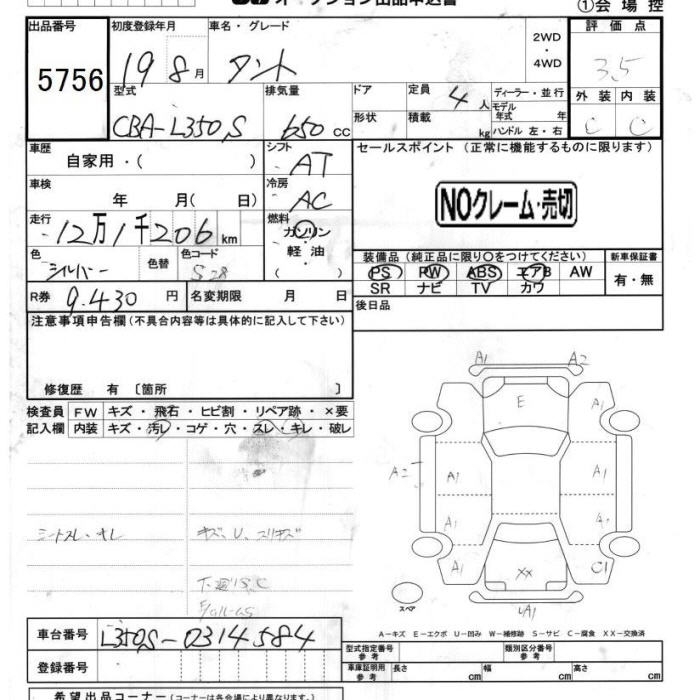 オークション出品申込書
①会場控
出品番号 初度登録年月 車名・グレード 2WD ・ 4WD 評価点
5756 19 8月 タント 3.5
型式 排気量 ドア 定員 4人 ディーラー・並行 外装 内装
CBA-L350S 650 cc 形状 積載 kg モデル年式 年 ハンドル 左・右 C C
車歴 自家用・( ) シフト AT セールスポイント (正常に機能するものに限ります)
車検 年 月( 日) 冷房 AC NOクレーム・売切
走行 12万1千206km 燃料 ガソリン・軽油
色 シルバー 色替 色コード S28 装備品 (純正品に限り〇をつけてください) 新車保証書
PS PW ABS エアB AW 有・無
SR ナビ TV カワ
R券 9.430円 名変期限 月 日 後日品
注意事項申告欄 (不具合内容等は具体的に記入して下さい)
修復歴 有 〔箇所 〕
検査員 FW キズ・飛石・ヒビ割・リペア跡・×要
記入欄 内装 キズ・汚レ・コゲ・穴・スレ・キレ・破レ
A1 A2
E A1
A2 A1 A1
A1 A1
XX C1
A1
スペア
シートスレ・キレ キズ、U、スリキズ
下廻りS,C
A-キズ E-エクボ U-凹み W-補修跡 S-サビ C-腐食 XX-交換済
車台番号 L350S-0314584
型式指定番号 参考 類別区分番号 参考
登録番号 車庫証明用 参考 長さ cm 幅 cm 高さ cm
希望出品コーナー (コーナーは各会場により異なります)